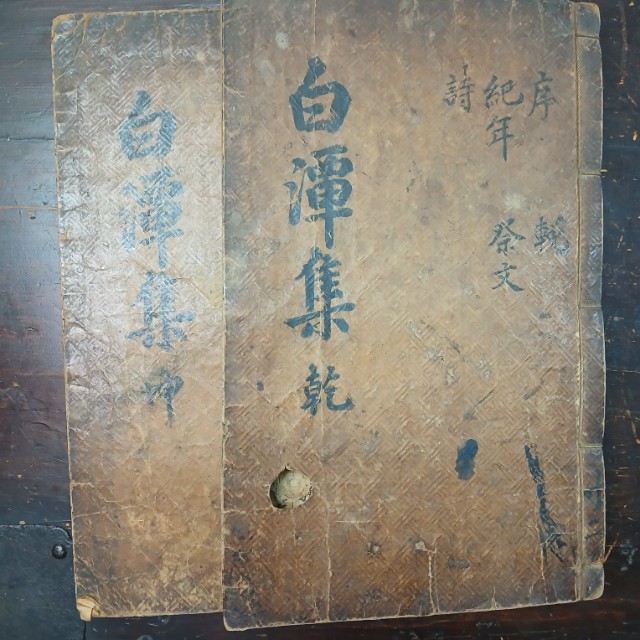 序 輓
紀年 祭文
詩
白潭集 乾
白潭集 坤